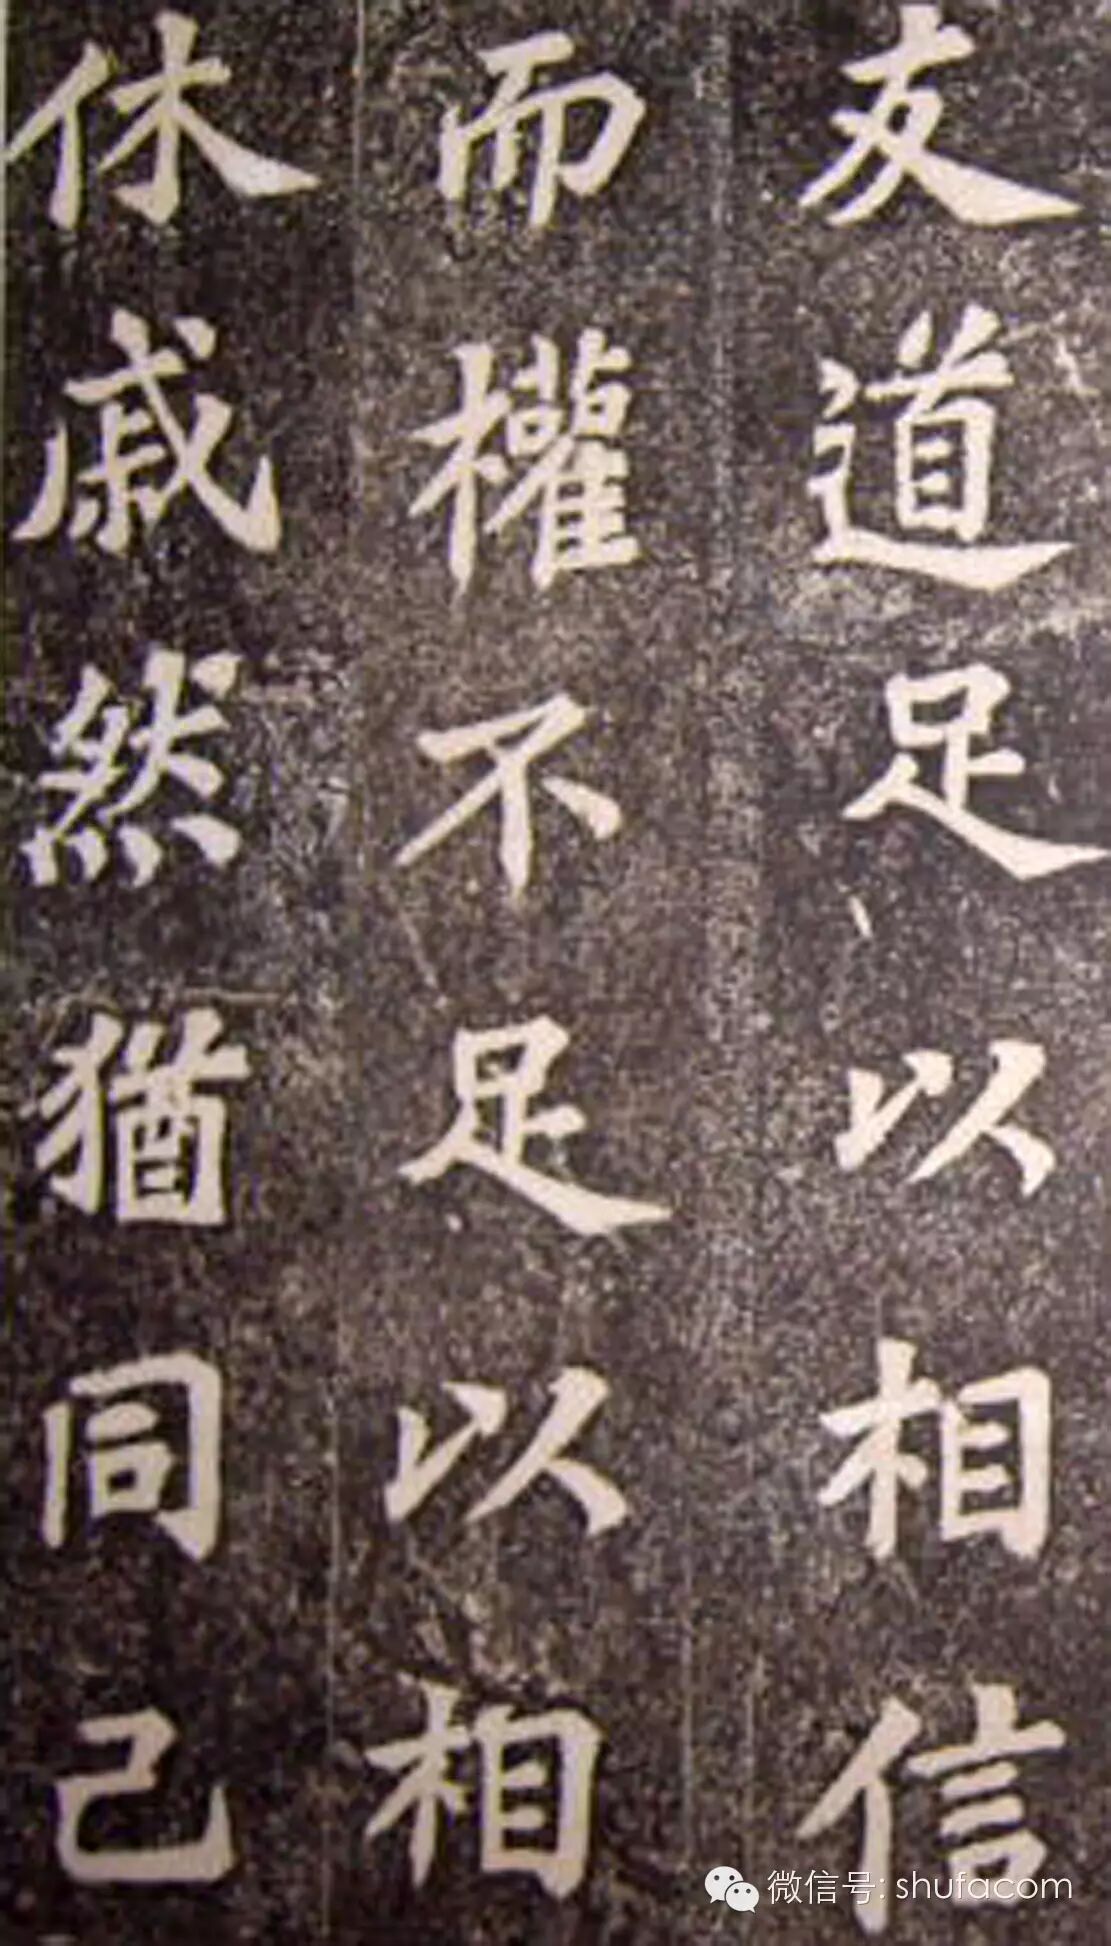 友道足以相信
而權不足以相
休戚然猶同己
微信号: shufacom